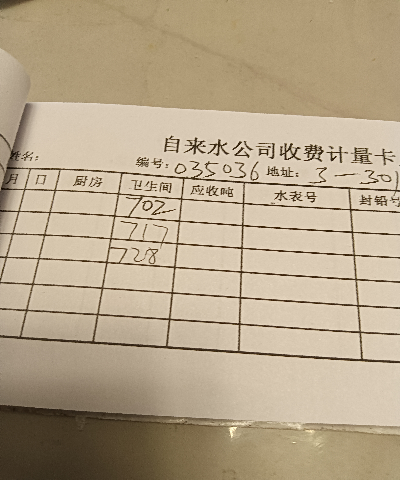 自来水公司收费计量卡
姓名: 编号: 035036 地址: 3-301
月 日 厨房 卫生间 应收吨 水表号 封铅号
702
717
728